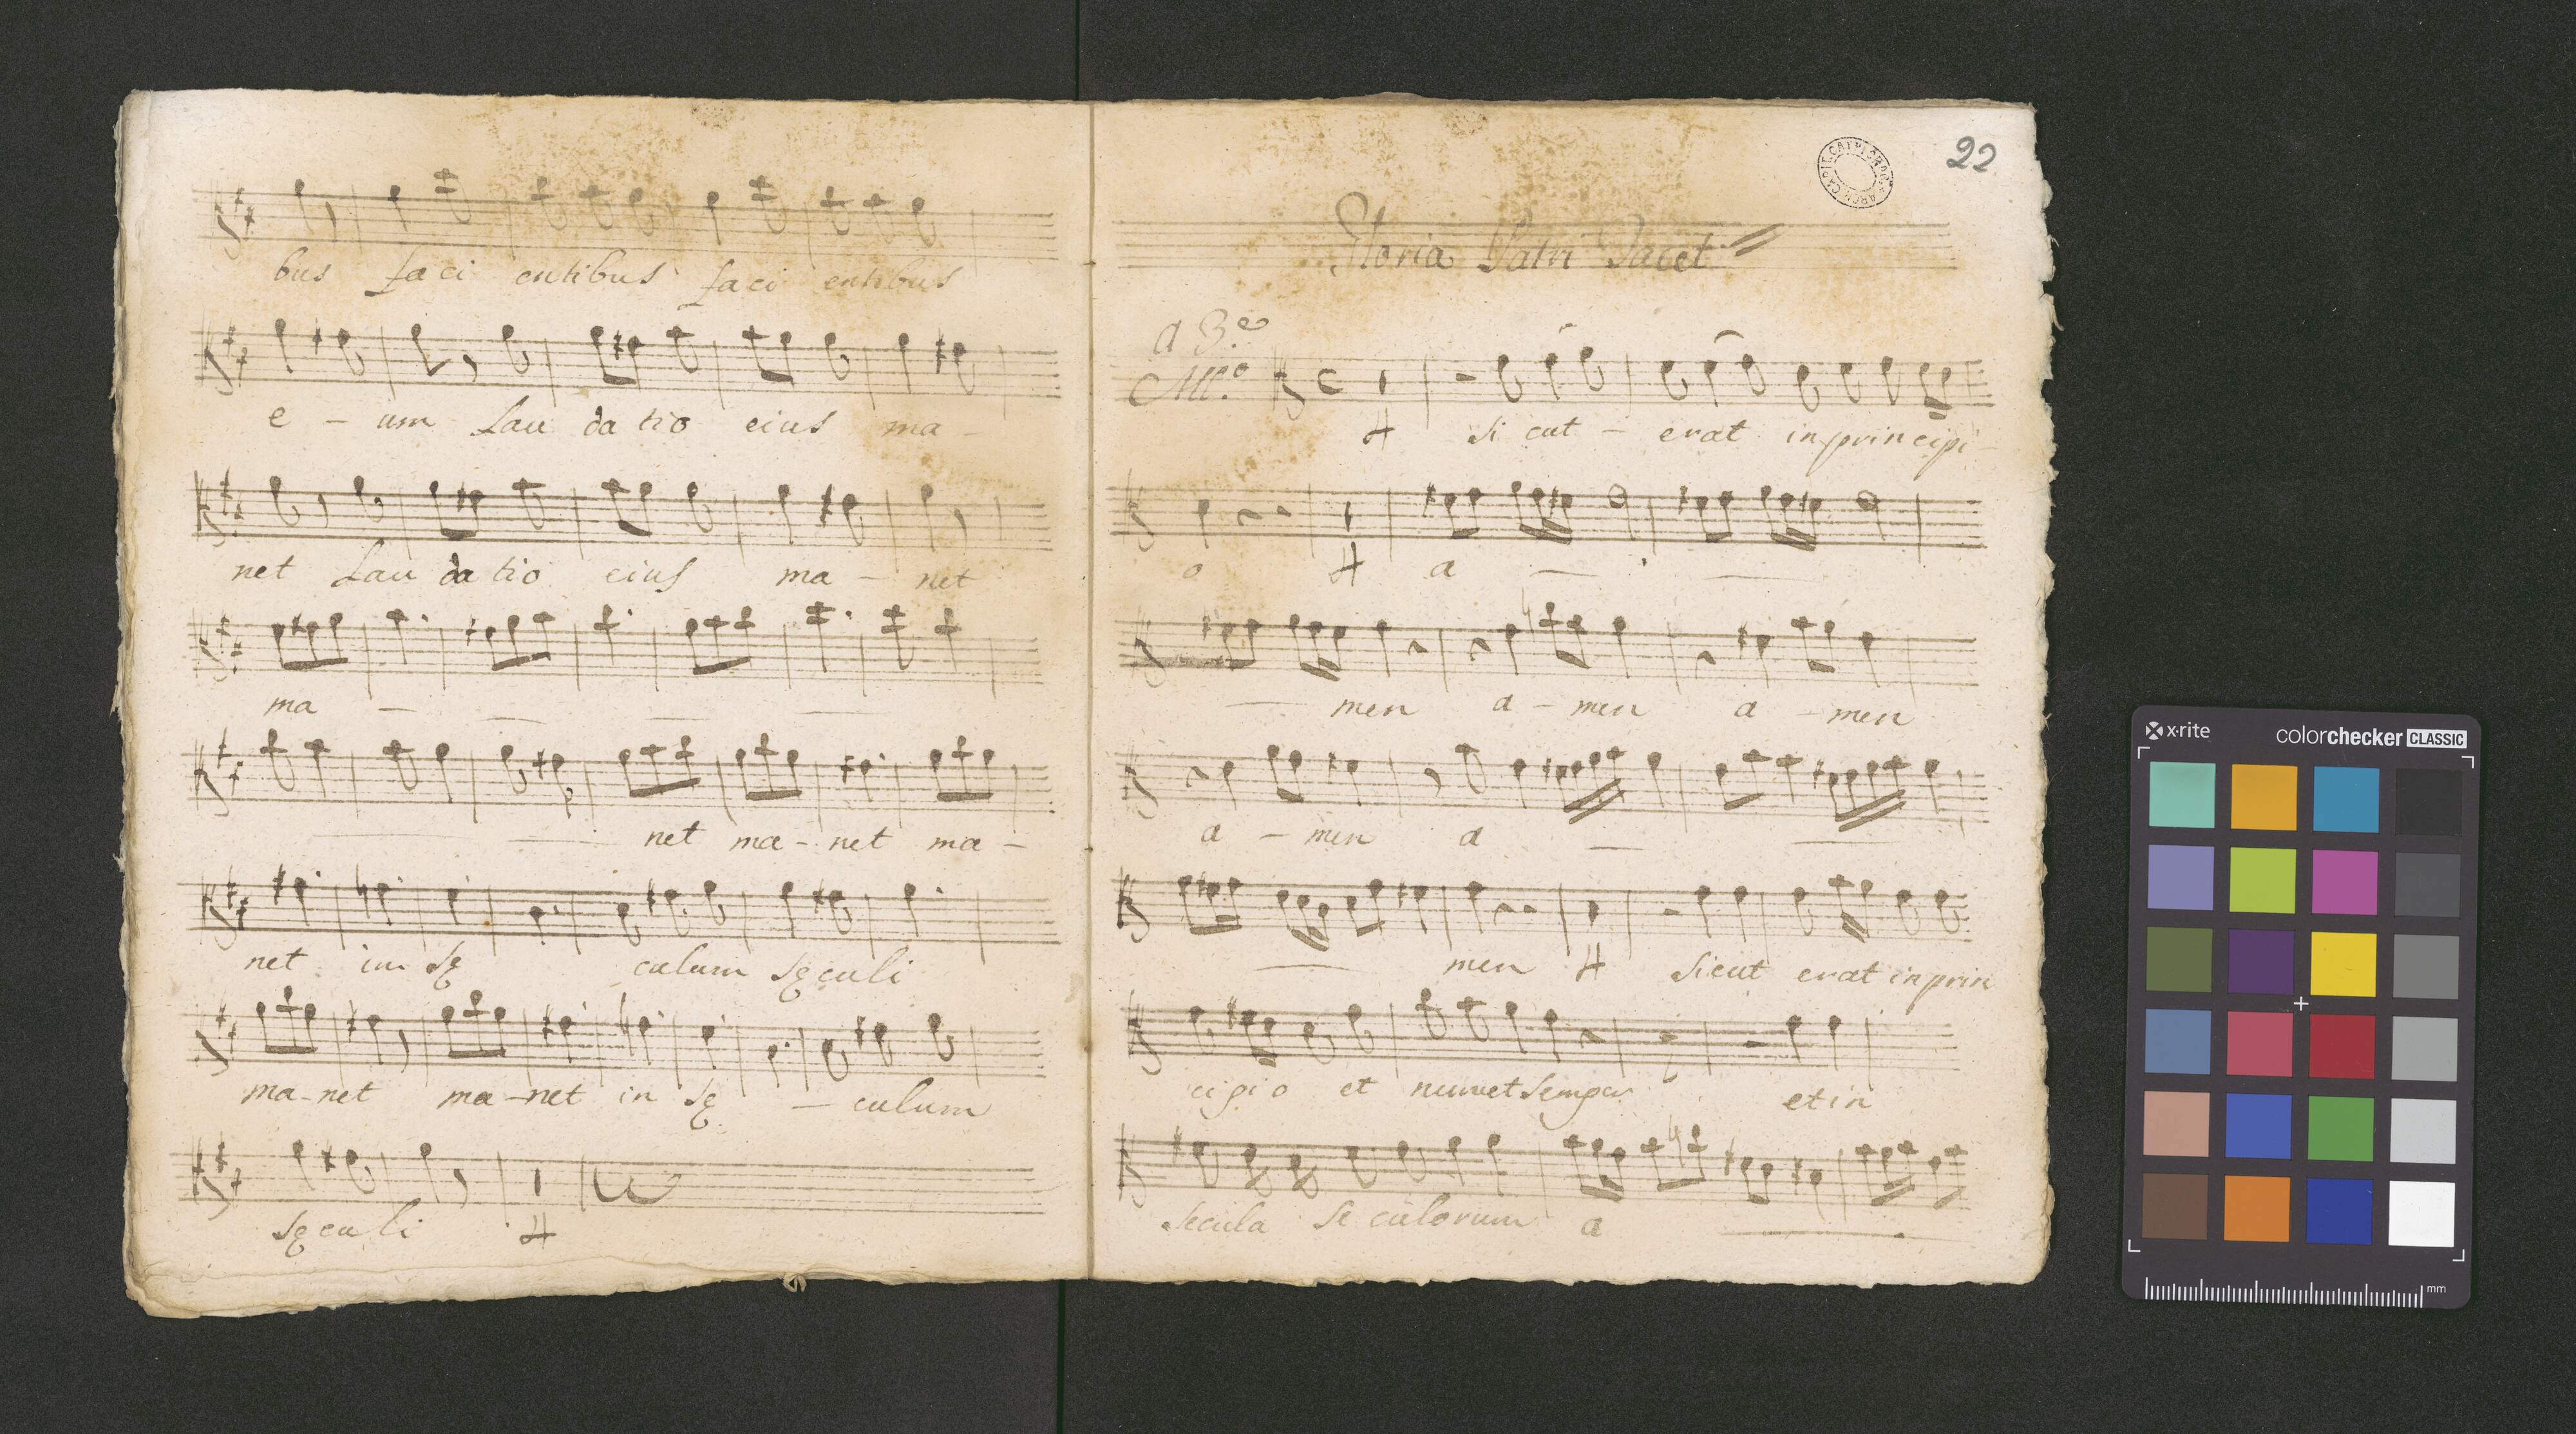 bus faci entibus faci entibus
e - um Lau da tio eius ma -
net Lau da tio eius ma - net
ma - - - -
net ma - net ma -
net in sę culum sęculi
ma - net ma - net in sę - culum
sęculi H
22
Gloria Patri Tacet
a 3.e
All.o
H Si cut - erat in principi -
o H a - -
- men a - men a - men
a - men a - -
- men H Sicut erat in prin
cipio et nunc et semper et in
secula se culorum a -
x·rite colorchecker CLASSIC
mm